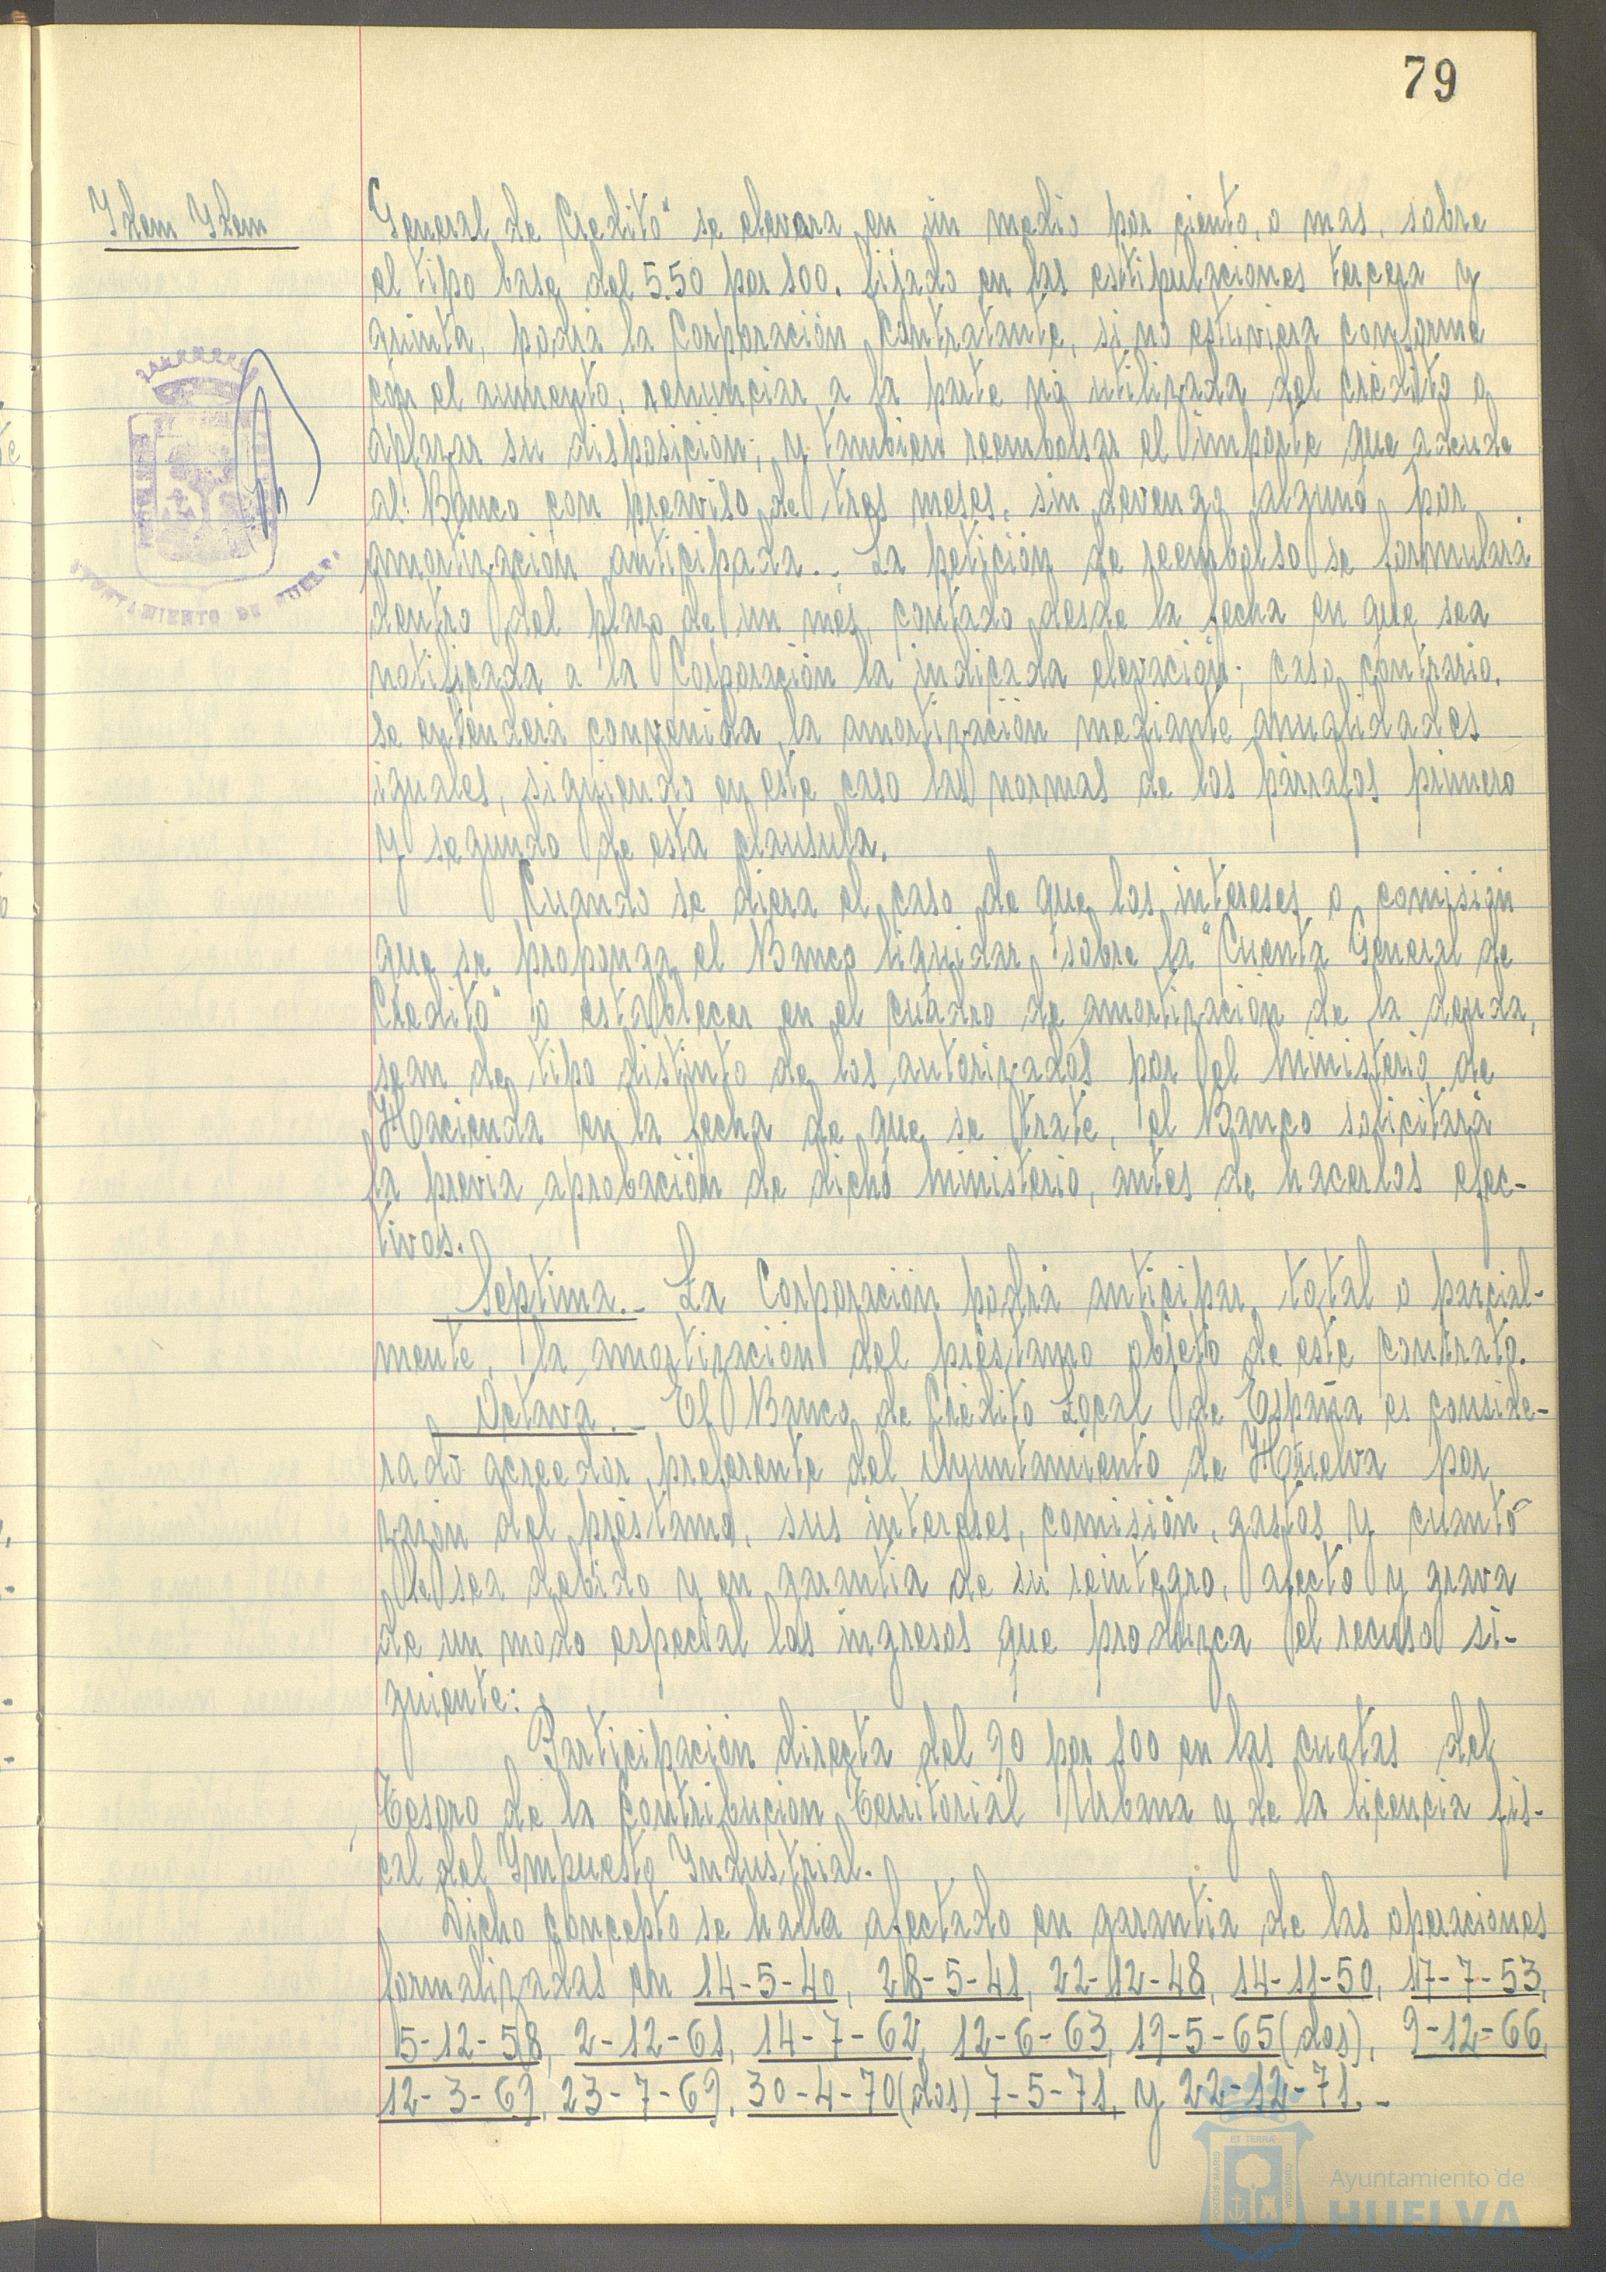 79
Idem Idem
General de Crédito" se elevara en un medio por ciento, o mas, sobre
el tipo base del 5.50 por 100. fijado en las estipulaciones tercera y
quinta, podrá la Corporación Contratante, si no estuviera conforme
con el aumento, renunciar a la parte no utilizada del crédito o
aplazar su disposición; y tambien reembolsar el importe que adeude
al Banco con preaviso de tres meses, sin devengo alguno por
amortización anticipada.- La petición de reembolso se formulará
dentro del plazo de un mes, contado desde la fecha en que sea
notificada a la Corporación la indicada elevación; caso contrario,
se entenderá convenida la amortización mediante anualidades
iguales, siguiendo en este caso las normas de los párrafos primero
y segundo de esta clausula.
Cuando se diera el caso de que los intereses o comisión
que se proponga el Banco liquidar sobre la "Cuenta General de
Crédito" o establecer en el cuadro de amortización de la deuda,
sean de tipo distinto de los autorizados por el Ministerio de
Hacienda en la fecha de que se trate, el Banco solicitará
la previa aprobación de dicho Ministerio, antes de hacerlos efec-
tivos.
Septima.- La Corporación podrá anticipar total o parcial-
mente, la amortización del préstamo objeto de este contrato.
Octava.- El Banco de Crédito Local de España es conside-
rado acreedor preferente del Ayuntamiento de Huelva por
razón del préstamo, sus intereses, comisión, gastos y cuanto
le sea debido y en garantia de su reintegro, afecto y grava
de un modo especial los ingresos que produzca el recurso si-
guiente:
Participación directa del 90 por 100 en las cuotas del
Tesoro de la Contribución Territorial Urbana y de la licencia fis-
cal del Impuesto Industrial.
Dicho concepto se halla afectado en garantia de las operaciones
formalizadas en 14-5-40, 28-5-41, 22-12-48, 14-11-50, 17-7-53,
5-12-58, 2-12-61, 14-7-62, 12-6-63, 19-5-65(dos), 9-12-66,
12-3-69, 23-7-69, 30-4-70(dos) 7-5-71, y 22-12-71.-
AYUNTAMIENTO DE HUELVA
Ayuntamiento de
HUELVA